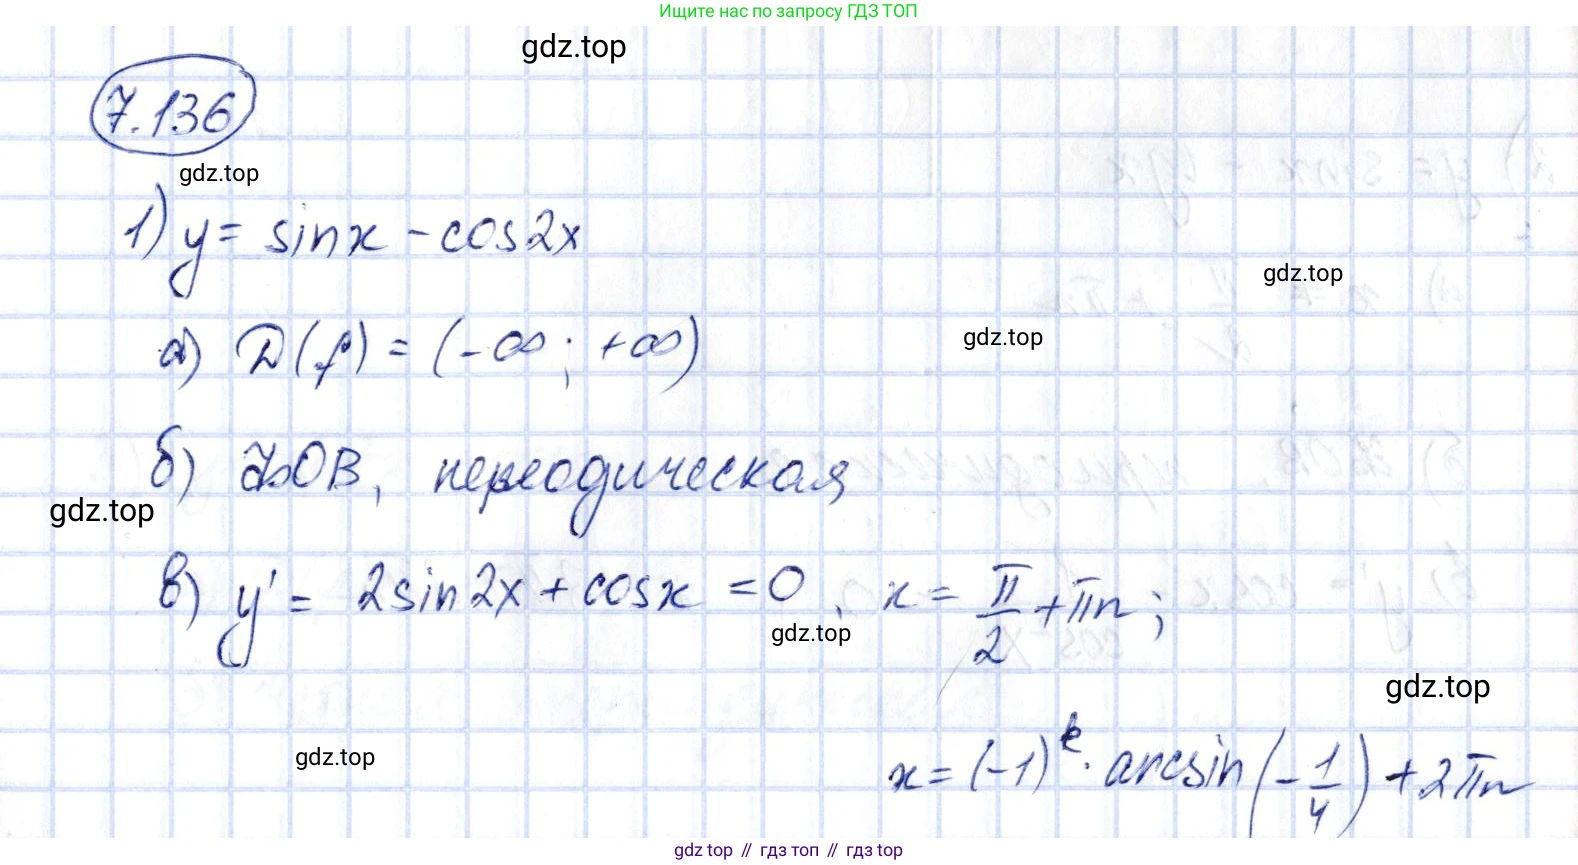 Ищите нас по запросу ГДЗ ТОП
gdz.top
7.136
gdz.top
1) y = sinx - cos2x
gdz.top
а) D(f) = (-∞; +∞)
gdz.top
б) ФОВ, периодическая
gdz.top
в) y' = 2sin2x + cosx = 0, x = π/2 + πn;
gdz.top
gdz.top
gdz.top
x = (-1)^k · arcsin(-1/4) + 2πn
gdz.top // гдз топ // гдз top